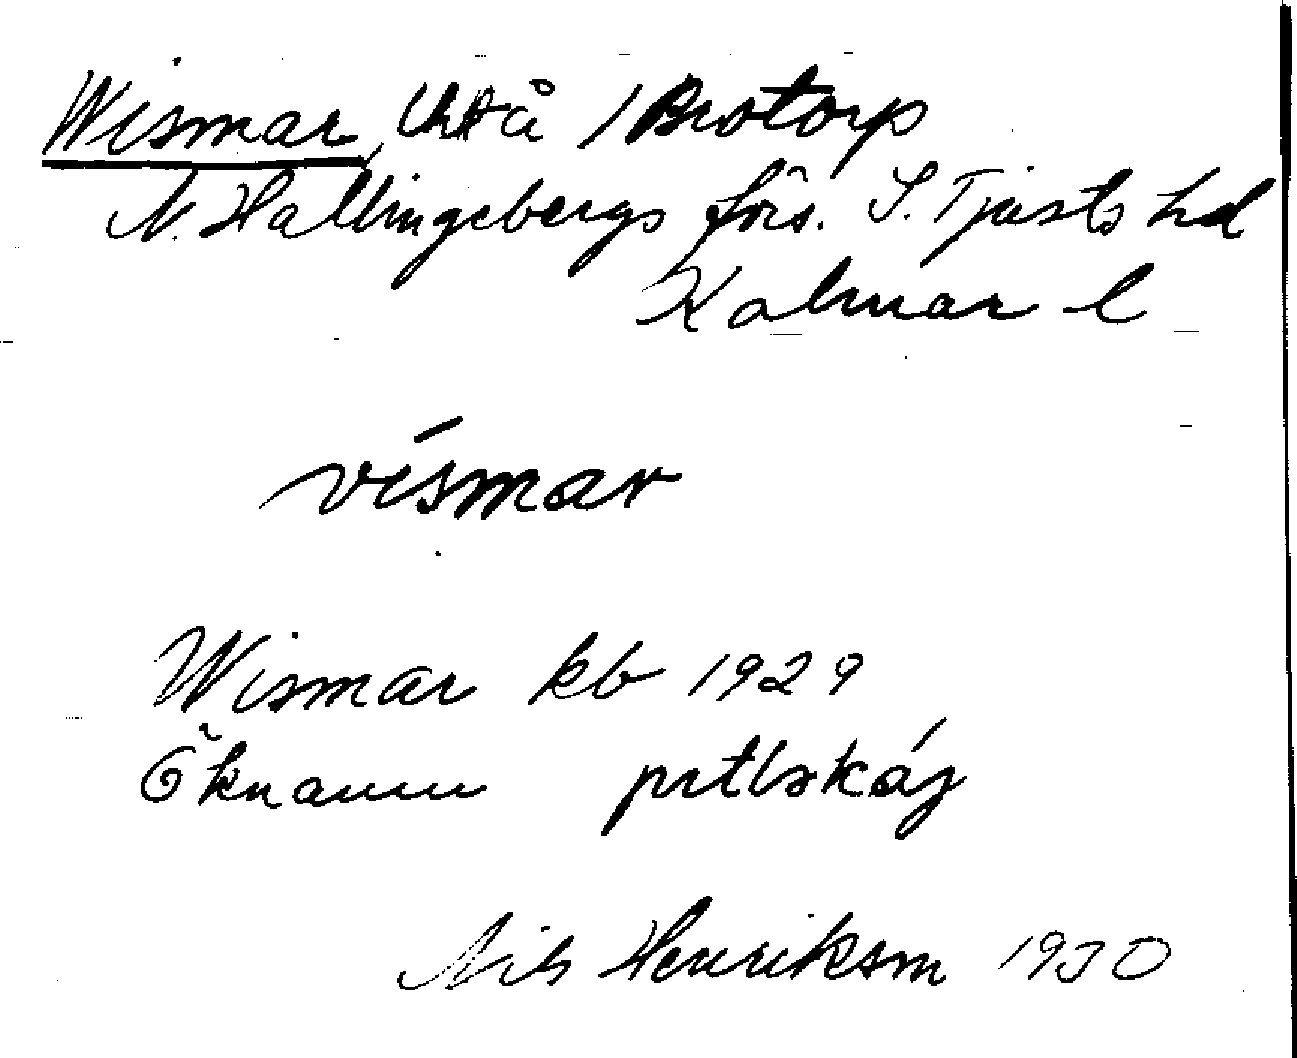 Wismar, Utå / Brotorp
N. Hallingebergs förs. S. Tjusts hd
Kalmar l
vísmar
Wismar kb 1929
Öknamn
Nils Henrikson 1930